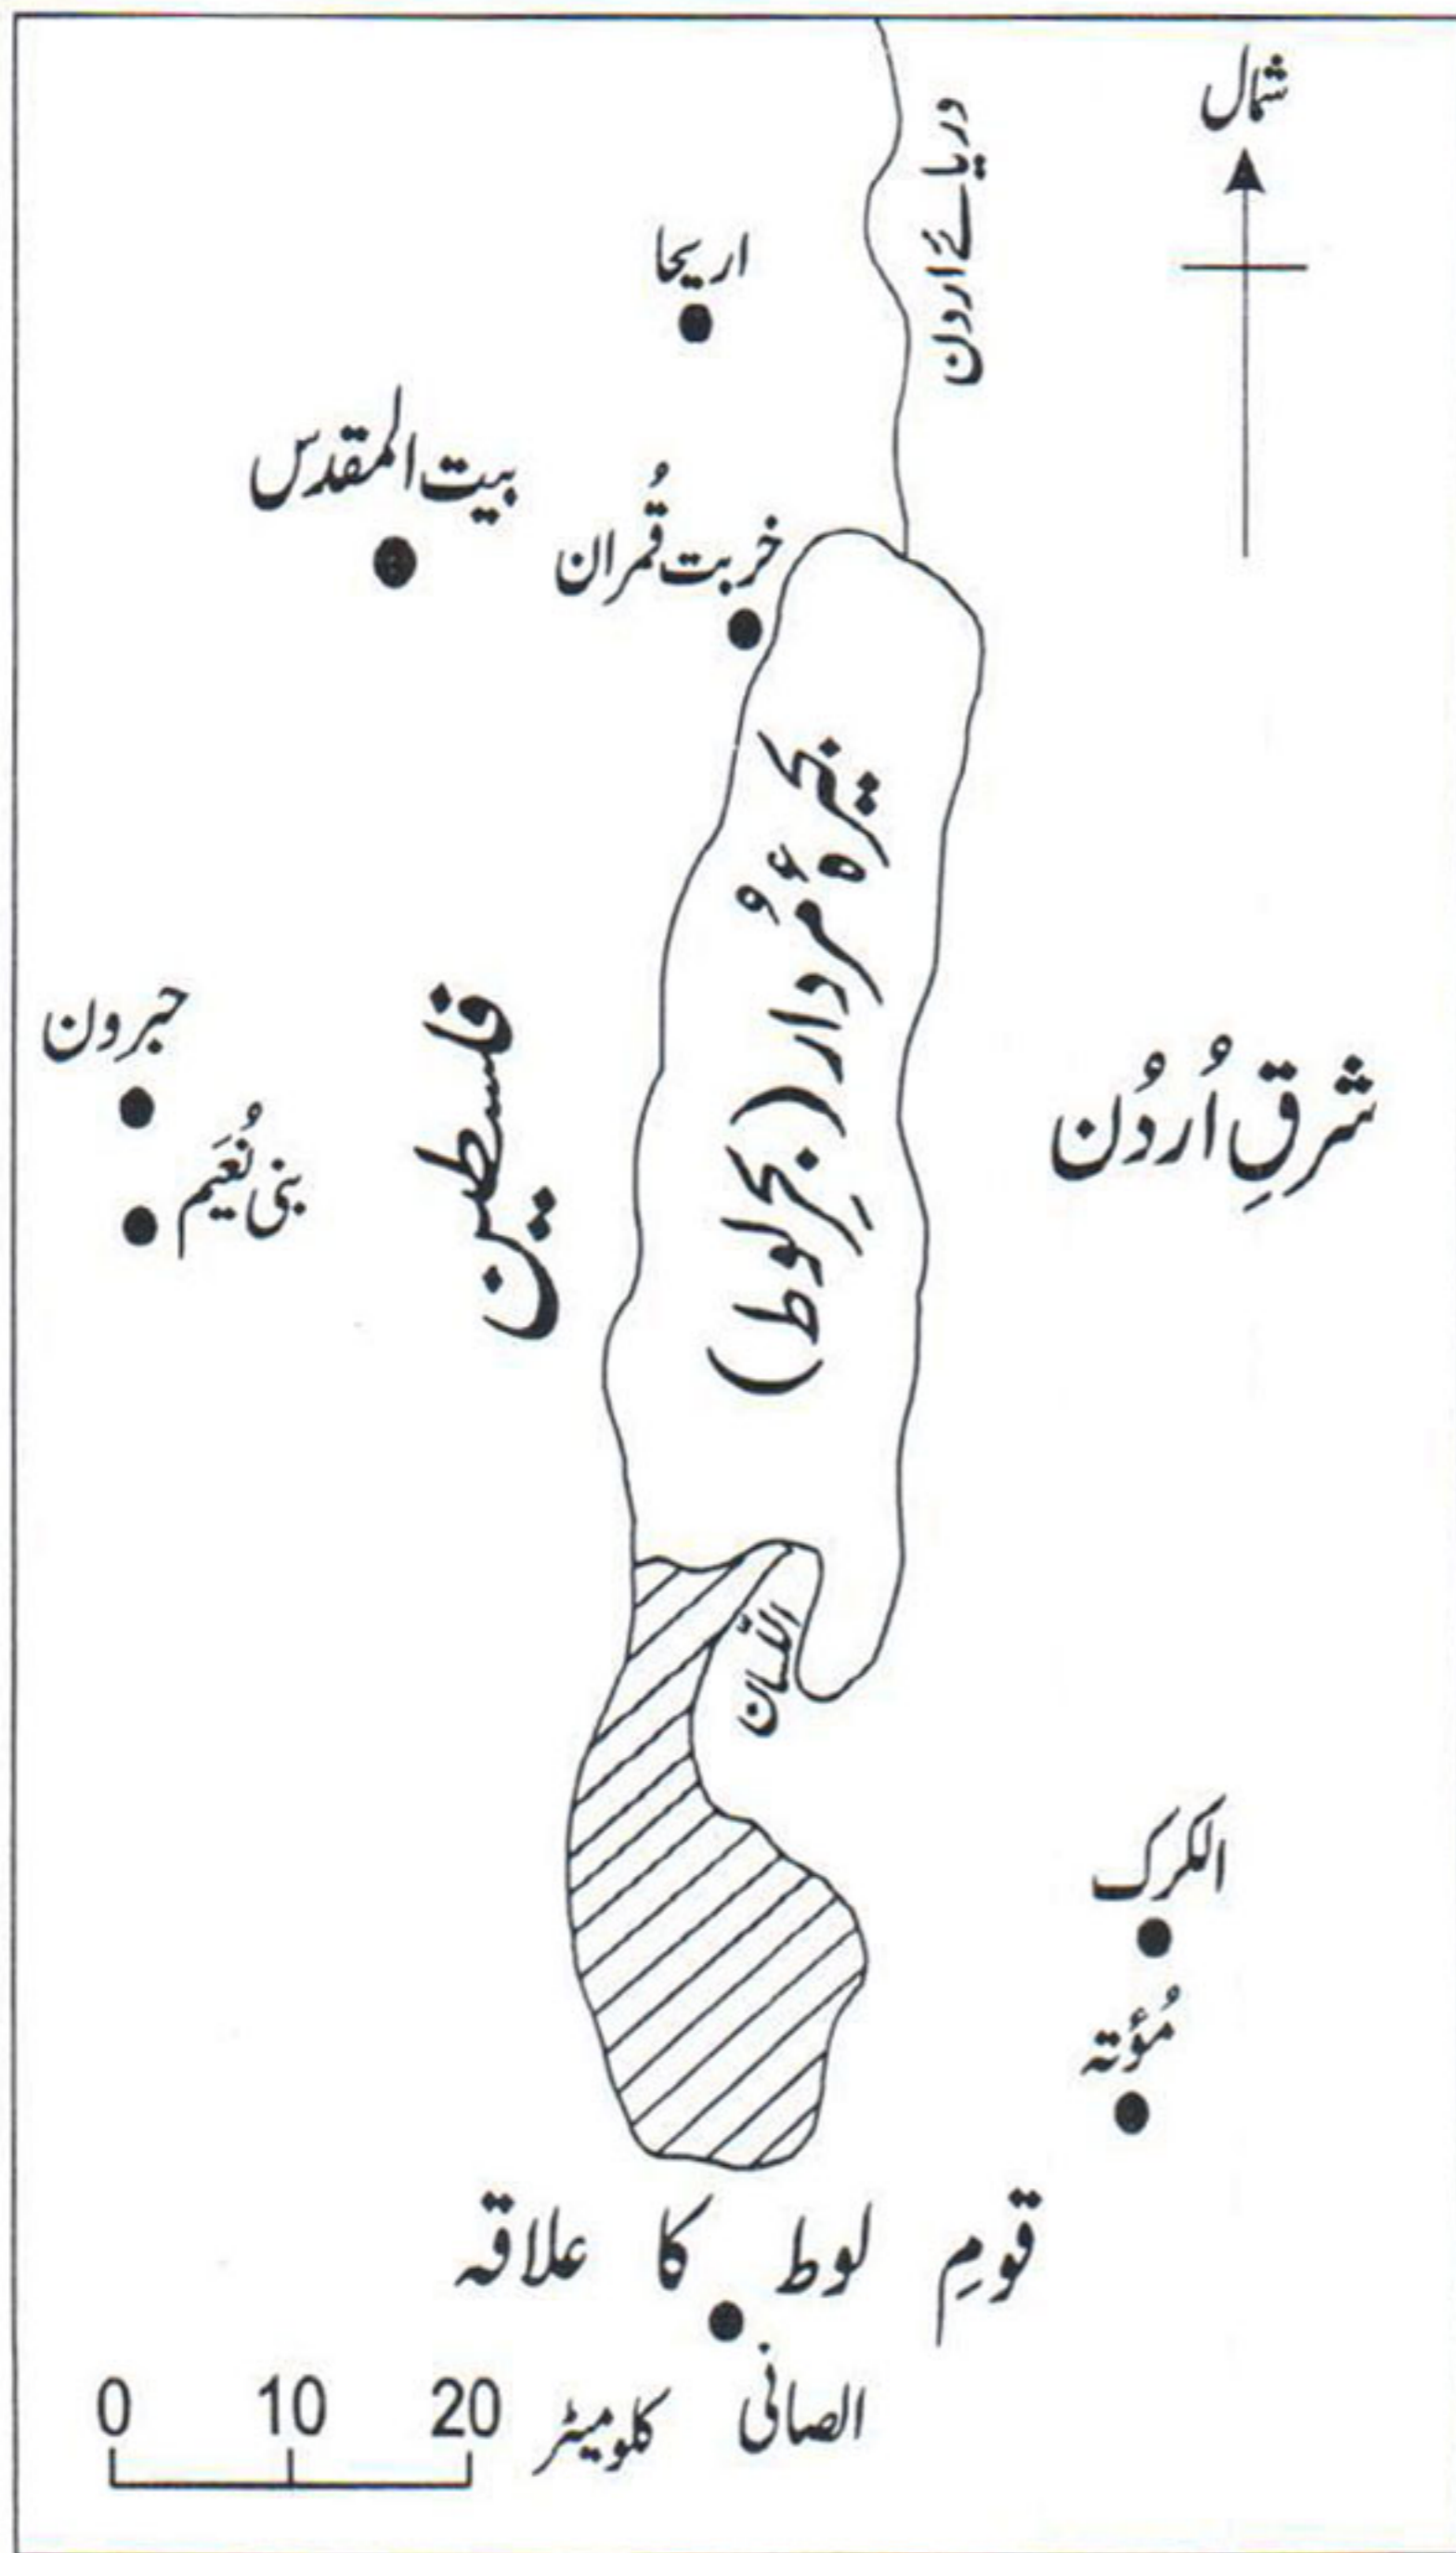 شمال
دریائے اردن
اریحا
بیت المقدس
خربت قُمران
بحیرۂ مُردار (بحرِ لوط)
حبرون
بنی نُعَیم
فلسطین
شرقِ اُردُن
اللسان
الکرک
مُؤتہ
قومِ لوط کا علاقہ
الصافی
0 10 20 کلومیٹر